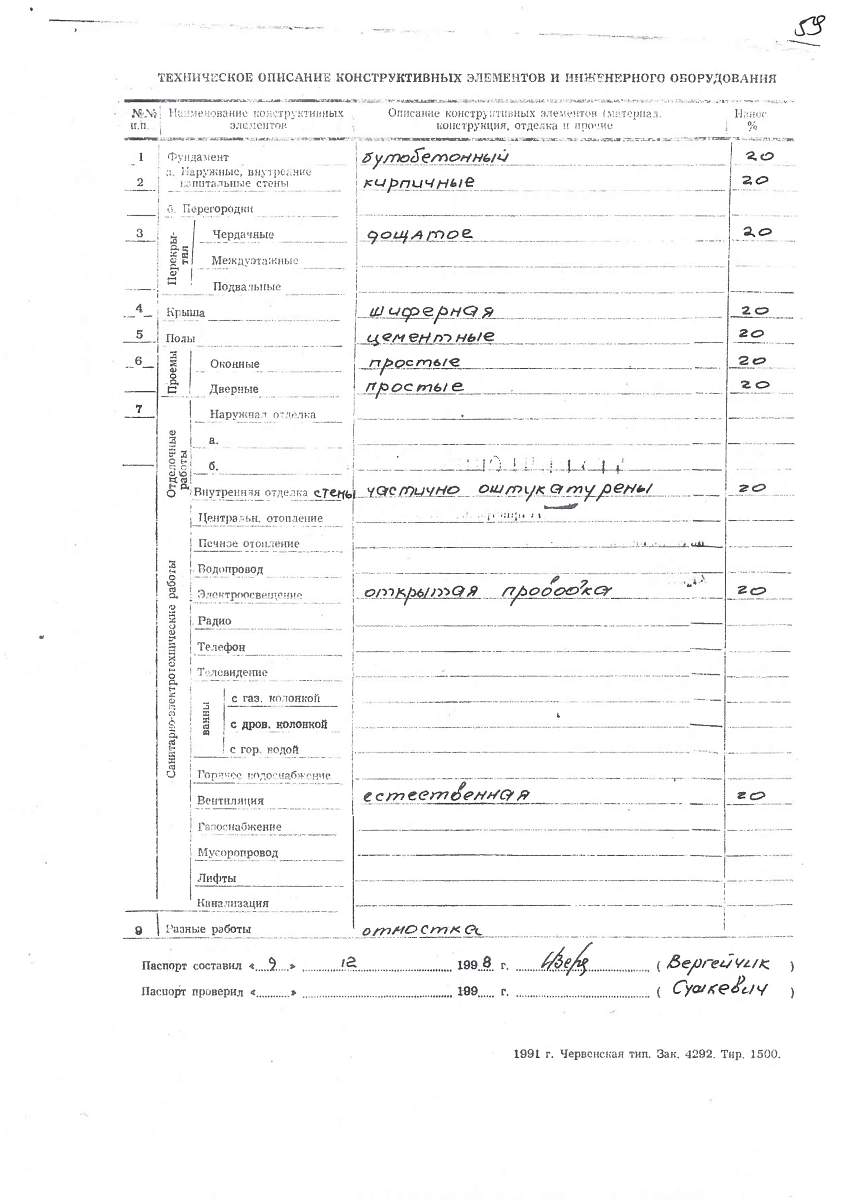 59
ТЕХНИЧЕСКОЕ ОПИСАНИЕ КОНСТРУКТИВНЫХ ЭЛЕМЕНТОВ И ИНЖЕНЕРНОГО ОБОРУДОВАНИЯ
№№ п.п. Наименование конструктивных элементов Описание конструктивных элементов (материал, конструкция, отделка и прочие Износ %
1 Фундамент бутобетонный 20
2 а. Наружные, внутренние капитальные стены кирпичные 20
б. Перегородки
3 Перекрытия Чердачные дощатое 20
Междуэтажные
Подвальные
4 Крыша шиферная 20
5 Полы цементные 20
6 Проемы Оконные простые 20
Дверные простые 20
7 Отделочные работы Наружная отделка
а.
б.
Внутренняя отделка стены частично оштукатурены 20
Санитарно-электротехнические работы Центральн. отопление
Печное отопление
Водопровод
Электроосвещение открытая проводка 20
Радио
Телефон
Телевидение
ванны с газ. колонкой
с дров. колонкой
с гор. водой
Горячее водоснабжение
Вентиляция естественная 20
Газоснабжение
Мусоропровод
Лифты
Канализация
9 Разные работы отмостка
Паспорт составил «9» 12 1998 г. (Вергейчик)
Паспорт проверил «» 199 г. (Сушкевич)
1991 г. Червенская тип. Зак. 4292. Тир. 1500.